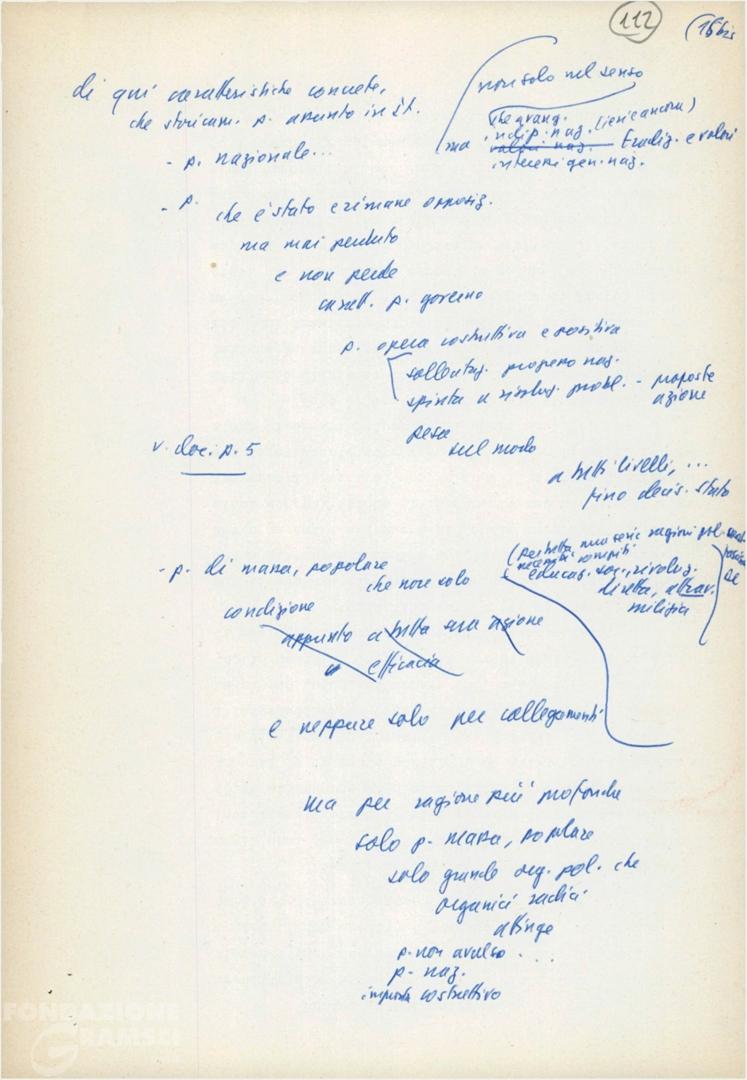 112
(16bis
di qui caratteristiche concrete,
che storicam. p. assunto in It.
non solo nel senso
che grand.
indip. naz. (ieri e ancora)
ma valori naz. tradiz. e valori
interessi gen. naz.
- p. nazionale...
- p. che è stato e rimane opposiz.
ma mai perduto
e non perde
caratt. p. governo
p. opera costruttiva e positiva
sollecitaz. progresso naz.
spinta a risoluz. probl. - proposte
azione
pesa
sul modo
v. doc. p. 5
a tutti livelli, ...
fino decis. stato
- p. di massa, popolare
che non solo
(per tutta una serie ragioni pol.
necessità compiti
educaz. soc., rivoluz.
diretta, attrav.
milizia
condizione
appunto a tutta sua azione
efficacia
e neppure solo per collegamenti
ma per ragione più profonda
solo p. massa, popolare
solo grande org. pol. che
organici radici
attinge
p. non avulso...
p. naz.
impronta costruttivo
FONDAZIONE
GRAMSCI